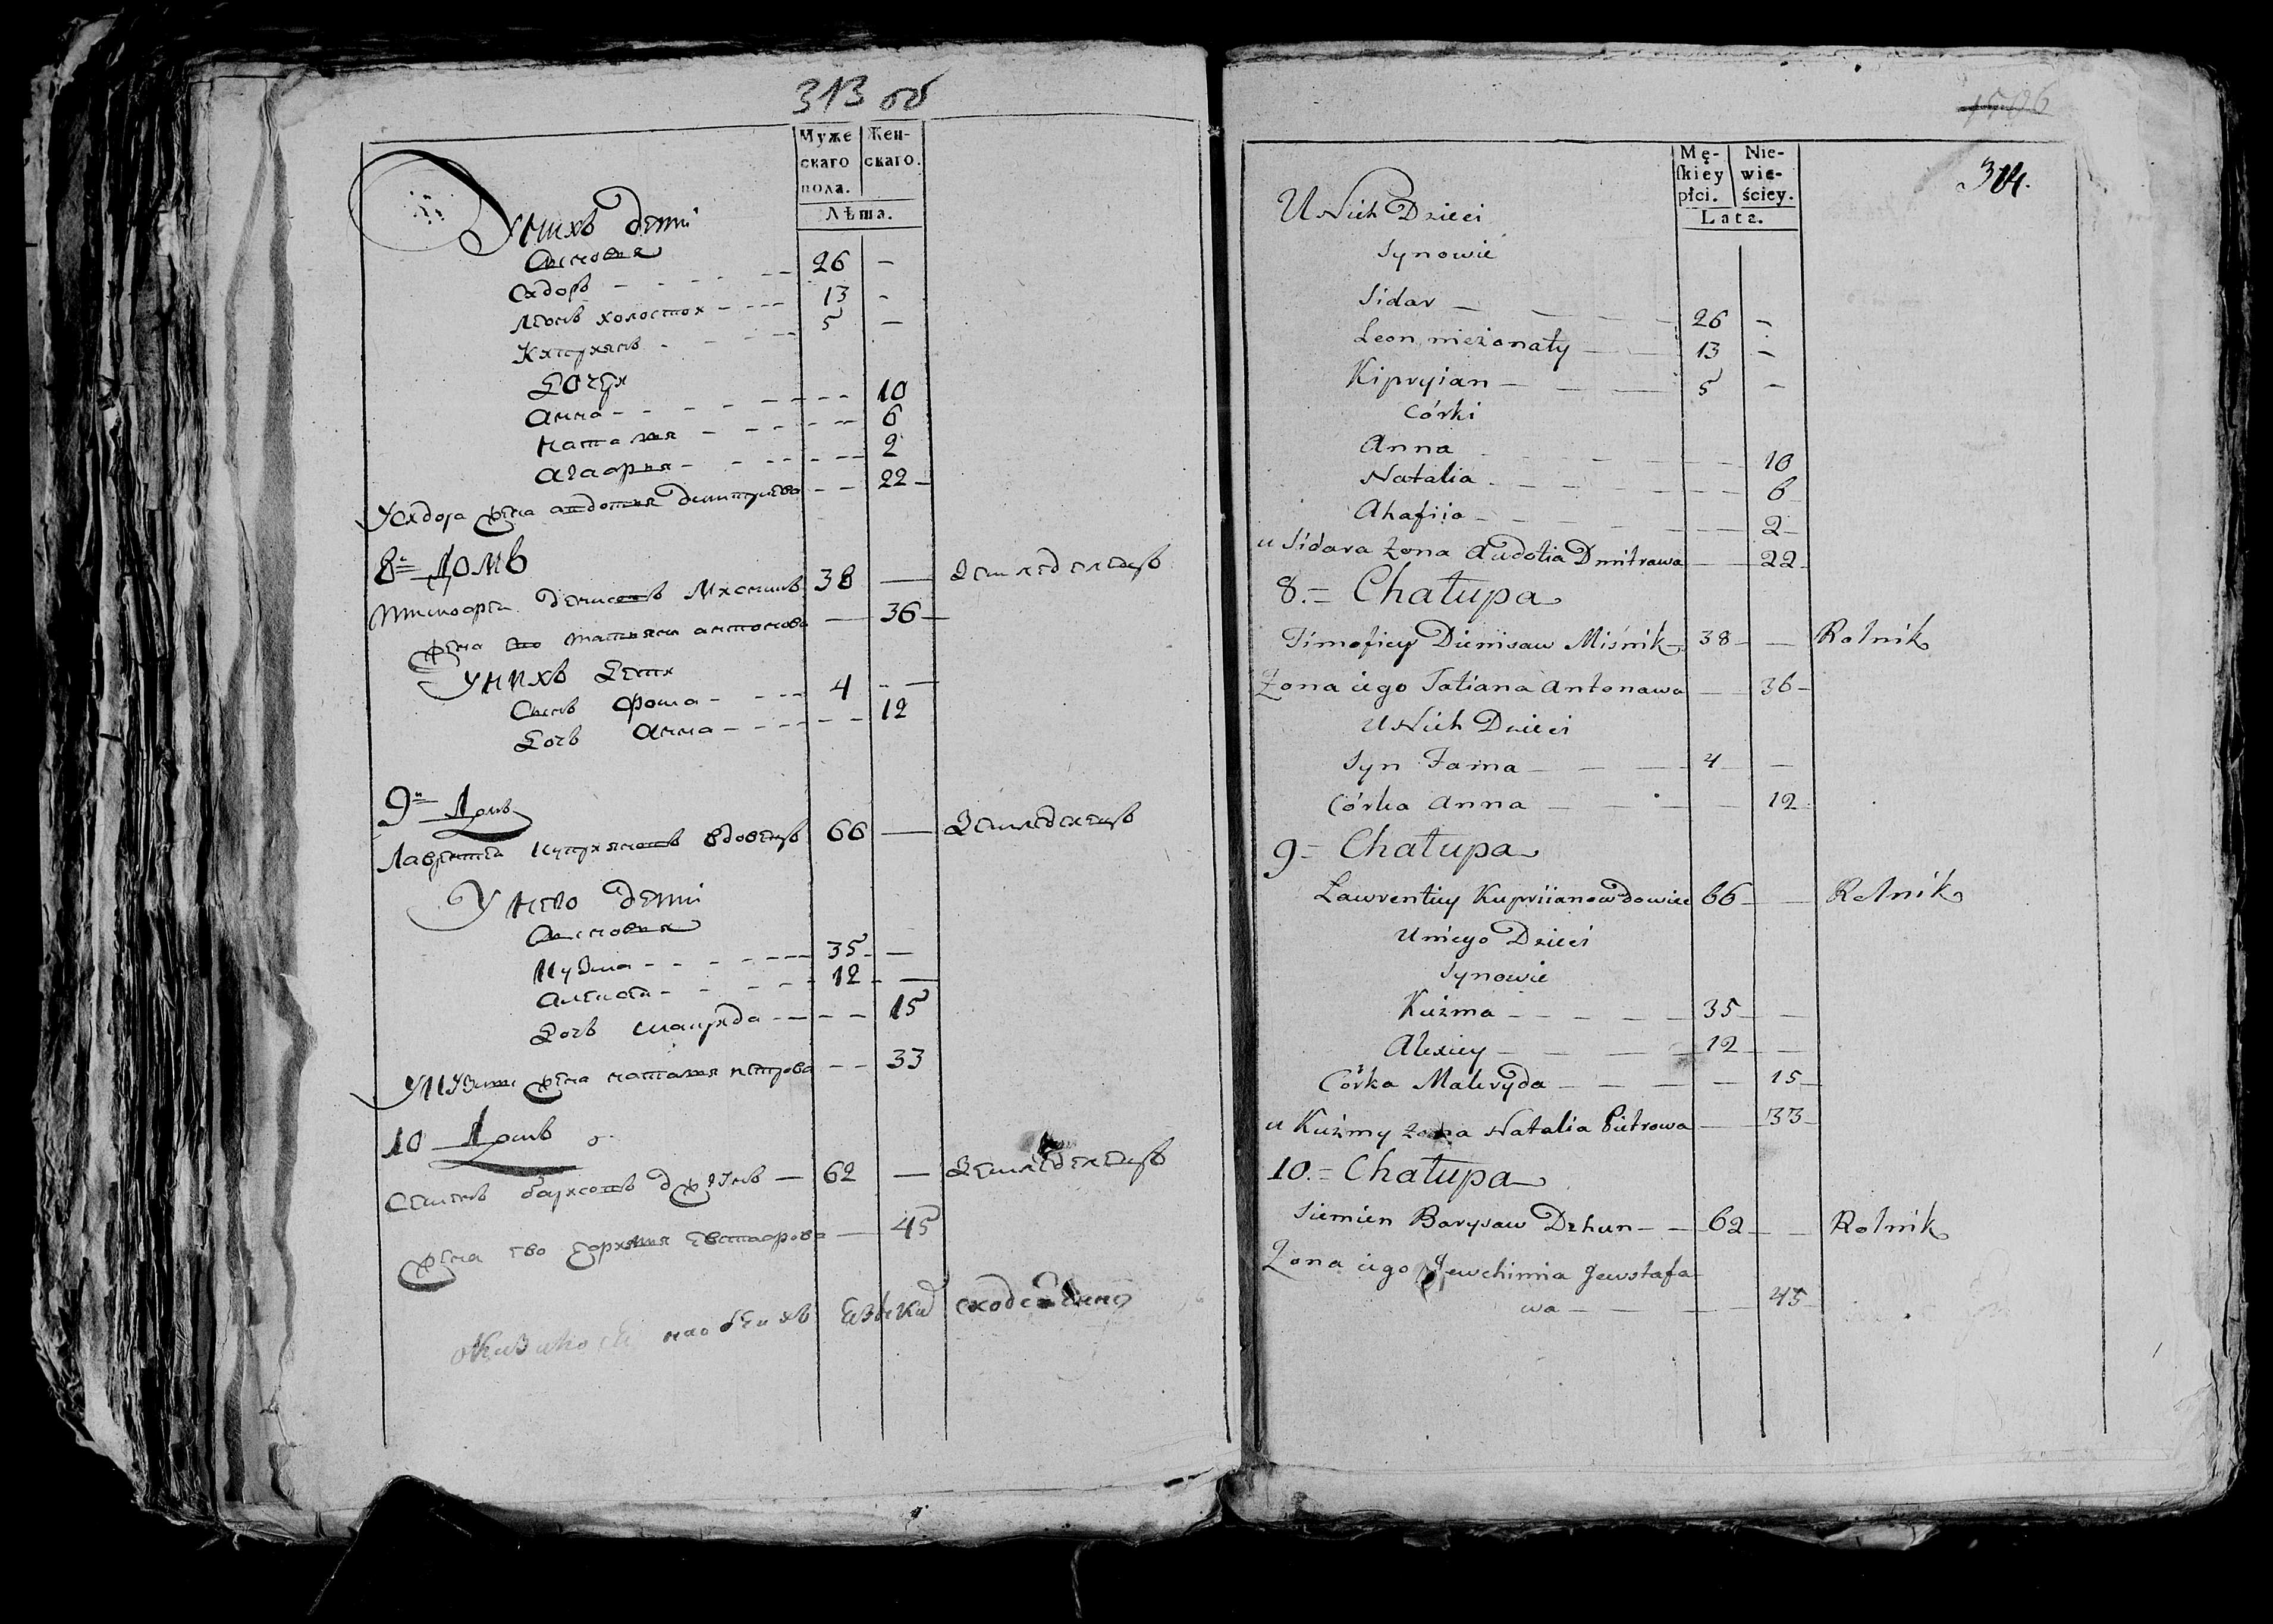 313 об
Муже Жен-
скаго скаго.
пола.
Лѣта.
У нихъ дети
Сыновья
Сидоръ - - - - 26 -
Леонъ холостой - - - 13 -
Киприянъ - - - 5 -
Дочери
Анна - - - - - 10
Наталия - - - - 6
Агафия - - - - 2
У Сидора жена авдотия дмитриева - - 22
8й Домъ
Тимофей денисовъ Мисникъ 38 — Земледелецъ
жена его татияна антонова — 36
У нихъ Дети
Сынъ Фома - - - 4 - —
Дочь Анна - - - - - 12
9й Домъ
Лаврентей Куприяновъ вдовецъ 66 — Земледелецъ
У него дети
Сыновья
Кузма - - - - 35 —
Алексей - - - - 12 —
Дочь - - - - 15
У Кузмы жена наталия петрова - - 33
10 Домъ
Семенъ барисовъ — 62 — Земледелецъ
жена его евстафова — 45
на обеихъ сходственно
1506
314.
Mę- Nie-
skiey wie-
płci. ściey.
Lata.
U Nich Dzieci
Synowie
Sidar — 26 -
Leon nieżonaty — 13 -
Kipryian — 5 -
Córki
Anna — 10
Natalia — 6
Ahafiia — 2
u Sidara Żona Audotia Dmitrawa — 22
8.= Chałupa
Timofiey Dienisaw Miśnik 38 — Rolnik
Żona iego Tatiana Antonawa — 36
U Nich Dzieci
Syn Fama — 4 —
Córka Anna — 12
9= Chałupa
Lawrentiy Kupriianow Wdowiec 66 — Rolnik
U niego Dzieci
Synowie
Kuźma — 35 —
Alexiey — 12 —
Córka Makryda — 15
u Kuźmy Żona Natalia Pietrowa — 33
10.= Chałupa
Siemien Barysaw Dzhun — 62 — Rolnik
Żona iego Jewchimia Jewstafa-
wa — 45